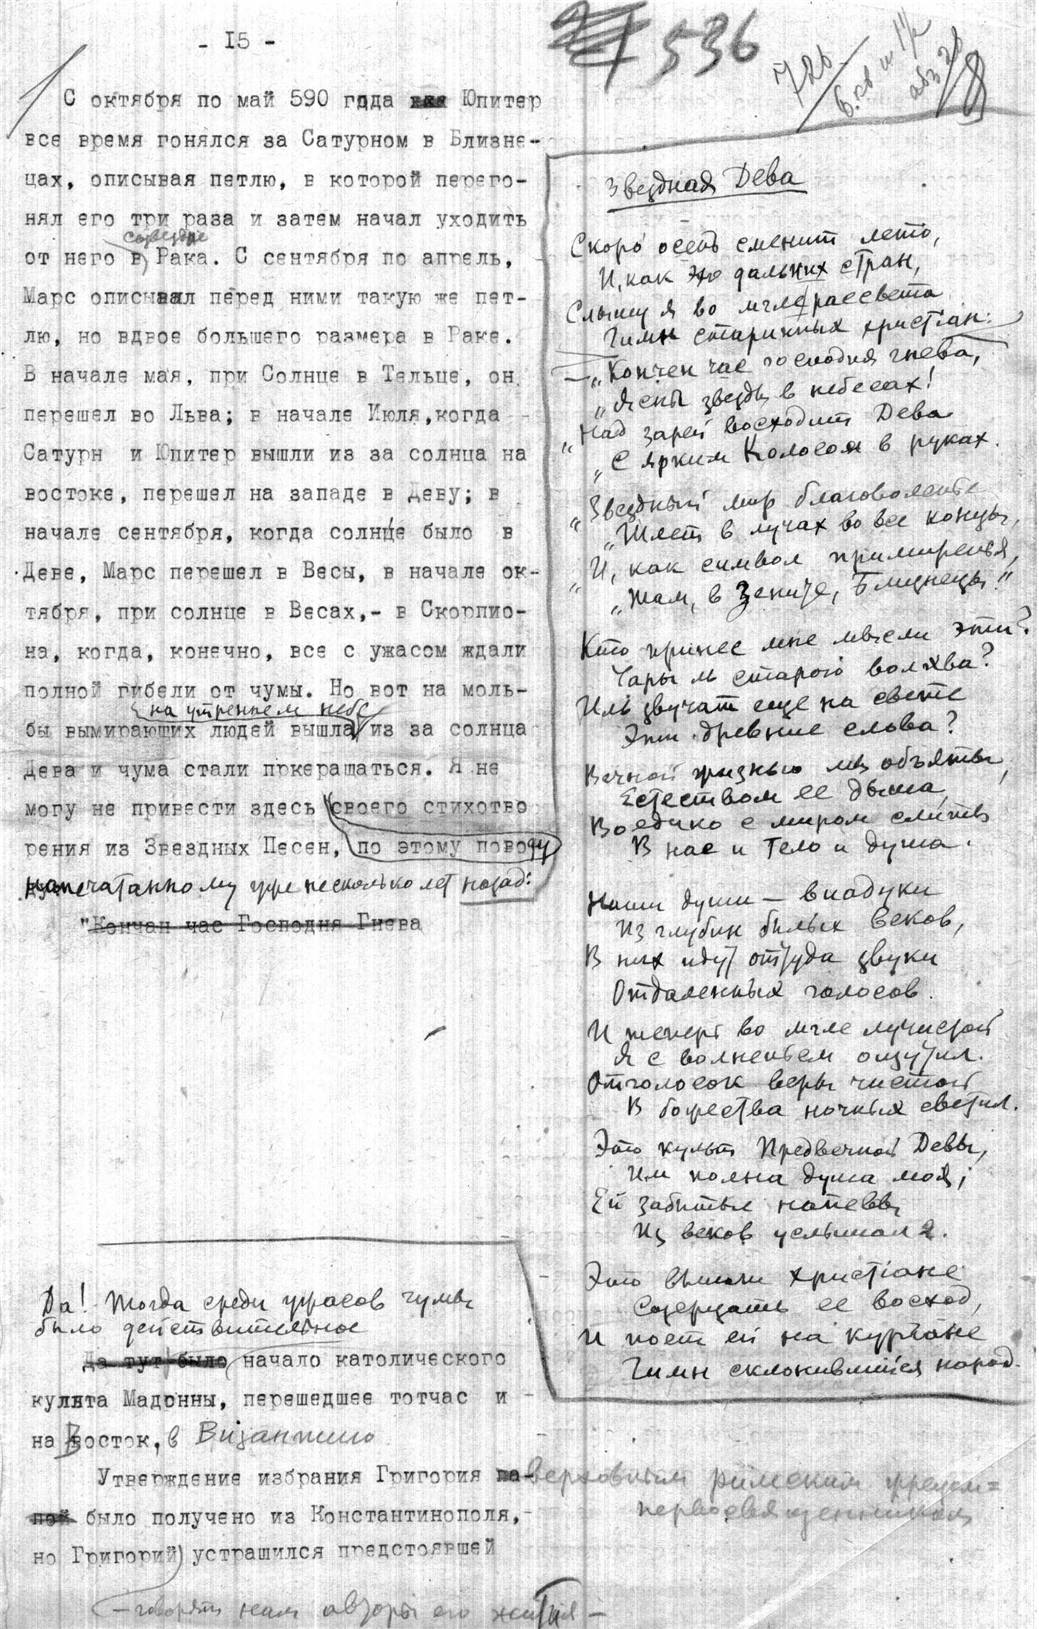 - I5 -
536
726
С октября по май 590 года Юпитер
все время гонялся за Сатурном в Близне-
цах, описывая петлю, в которой перего-
нял его три раза и затем начал уходить
созвездие
от него в Рака. С сентября по апрель,
Марс описывал перед ними такую же пет-
лю, но вдвое большего размера в Раке.
В начале мая, при Солнце в Тельце, он
перешел во Льва; в начале Июля,когда
Сатурн и Юпитер вышли из за солнца на
востоке, перешел на западе в Деву; в
начале сентября, когда солнце было в
Деве, Марс перешел в Весы, в начале ок-
тября, при солнце в Весах,- в Скорпио-
на, когда, конечно, все с ужасом ждали
полной гибели от чумы. Но вот на моль-
на утреннем небе
бы вымирающих людей вышла из за солнца
Дева и чума стали пркеращаться. Я не
могу не привести здесь своего стихотво
рения из Звездных Песен, по этому поводу
напечатанному уже несколько лет назад:
"Кончан час Господня Гнева
Звездная Дева
Скоро осень сменит лето,
И, как эхо дальних стран,
Слышу я во мгле рассвета
Гимн старинных христiан:
„Кончен час господня гнева,
„Ясны звезды в небесах!
„Над зарей восходит Дева
„С ярким Колосом в руках.
„Звездный мир благоволенье
„Шлет в лучах во все концы,
„И, как символ примиренья,
„Там, в Зените, Близнецы!"
Кто принес мне мысли эти?
Чары ль старого волхва?
Иль звучат еще на свете
Эти древние слова?
Вечной жизнью мы объяты,
Естеством ее дыша,
Воедино с миром слиты
В нас и Тело и душа.
Наши души — виадуки
Из глубин былых веков,
В них идут оттуда звуки
Отдаленных голосов.
И теперь во мгле лучистой
Я с волненьем ощутил.
Отголосок веры чистой
В божества ночных светил.
Это культ Предвечной Девы,
Им полна душа моя;
Ей забытые напевы
Из веков услышал я.
Это вышли христiане
Созерцать ее восход,
И поет ей на кургане
Гимн склонившийся народ.
Да! Тогда среди ужасов чумы
было действительное
Да тут было начало католического
культа Мадонны, перешедшее тотчас и
на Восток, в Византию
Утверждение избрания Григория па-верховным римским жрецом=
пой было получено из Константинополя,- первосвященником
но Григорий устрашился предстоявшей
— говорят нам авторы его жития —